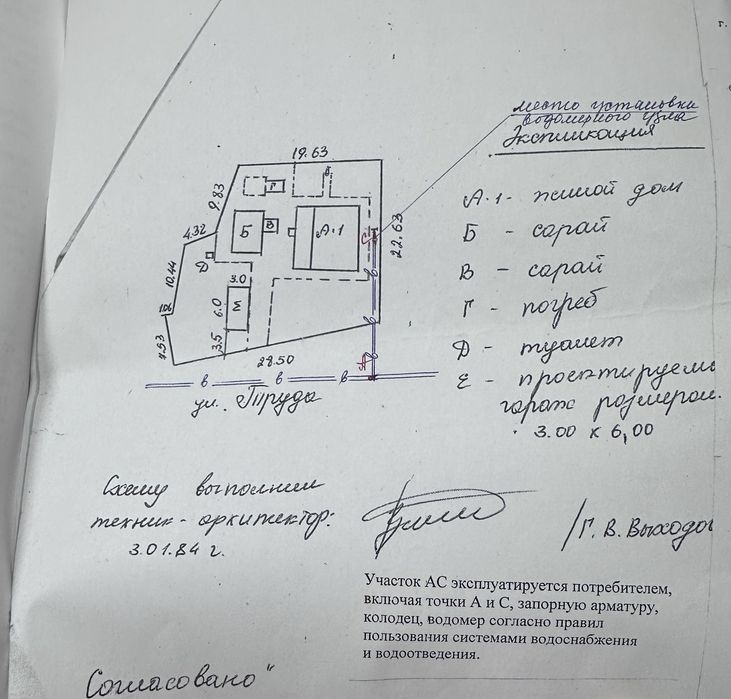 г.
место установки
водомерного узла
Экспликация
А·1 - жилой дом
Б - сарай
В - сарай
Г - погреб
Д - туалет
Е - проектируемы
гараж размером.
3.00 х 6,00
19.63
9.83
Г
4.32
Б
В
А·1
С
22.63
Д
10.44
3.0
6.0
3.5
28.50
4.53
А
в
в
в
в
в
ул. Труда
Схему выполнил
техник - архитектор:
3.01.84 г.
/Г. В. Выходо
Участок АС эксплуатируется потребителем,
включая точки А и С, запорную арматуру,
колодец, водомер согласно правил
пользования системами водоснабжения
и водоотведения.
Согласовано"